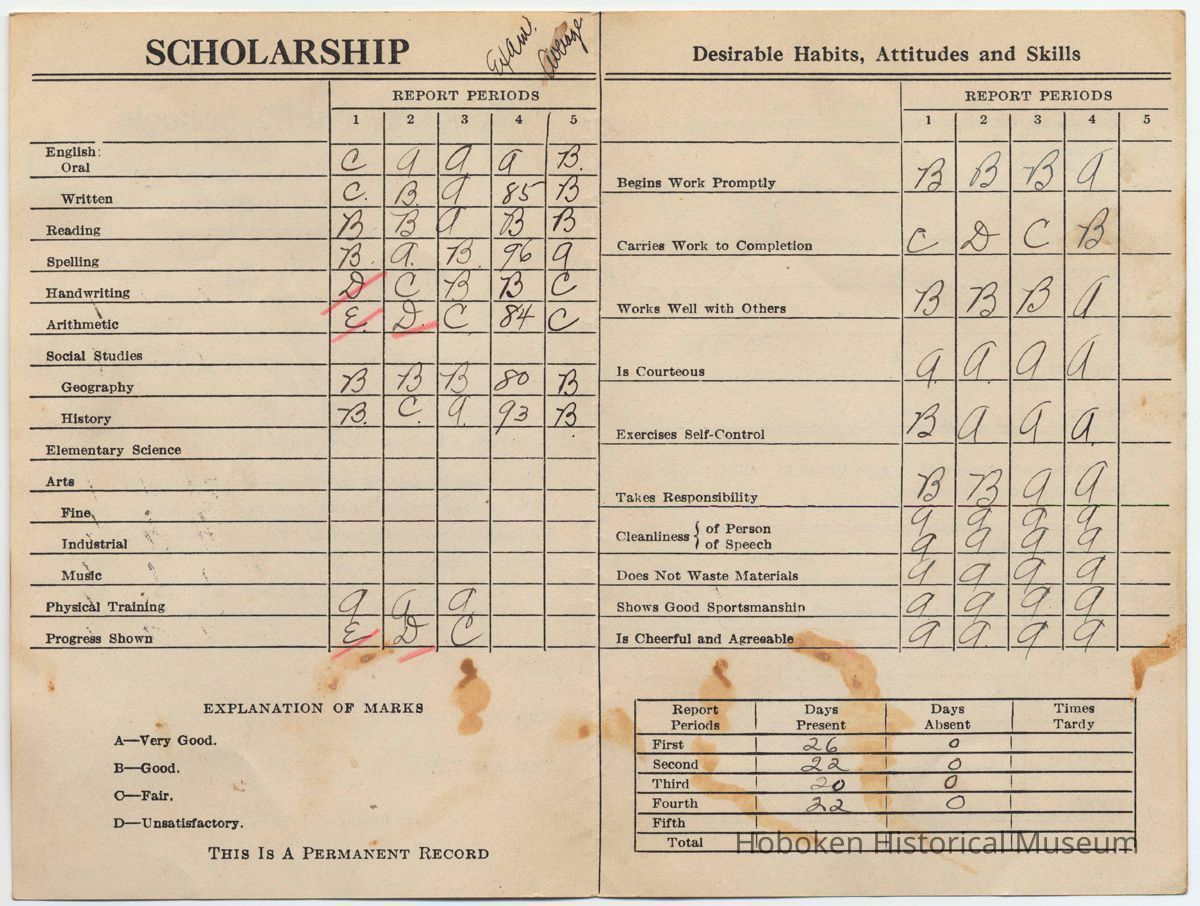 SCHOLARSHIP Exam. Average
REPORT PERIODS
1 2 3 4 5
English:
Oral C a a a B.
Written C. B. a 85 B
Reading B B a B B
Spelling B. a. B. 96 a
Handwriting D C B B C
Arithmetic E. D. C 84 C
Social Studies
Geography B B B 80 B
History B. C a. 93 B
Elementary Science
Arts
Fine
Industrial
Music
Physical Training a a a
Progress Shown E D C
EXPLANATION OF MARKS
A—Very Good.
B—Good.
C—Fair.
D—Unsatisfactory.
THIS IS A PERMANENT RECORD
Desirable Habits, Attitudes and Skills
REPORT PERIODS
1 2 3 4 5
Begins Work Promptly B B B a
Carries Work to Completion C D C B
Works Well with Others B B B a
Is Courteous a. a. a a
Exercises Self-Control B a a a.
Takes Responsibility B B a a
Cleanliness { of Person a a a a
of Speech a a a a
Does Not Waste Materials a a a a
Shows Good Sportsmanship a a a. a
Is Cheerful and Agreeable a a a a
Report Periods Days Present Days Absent Times Tardy
First 26 0
Second 22 0
Third 20 0
Fourth 22 0
Fifth
Total
Hoboken Historical Museum